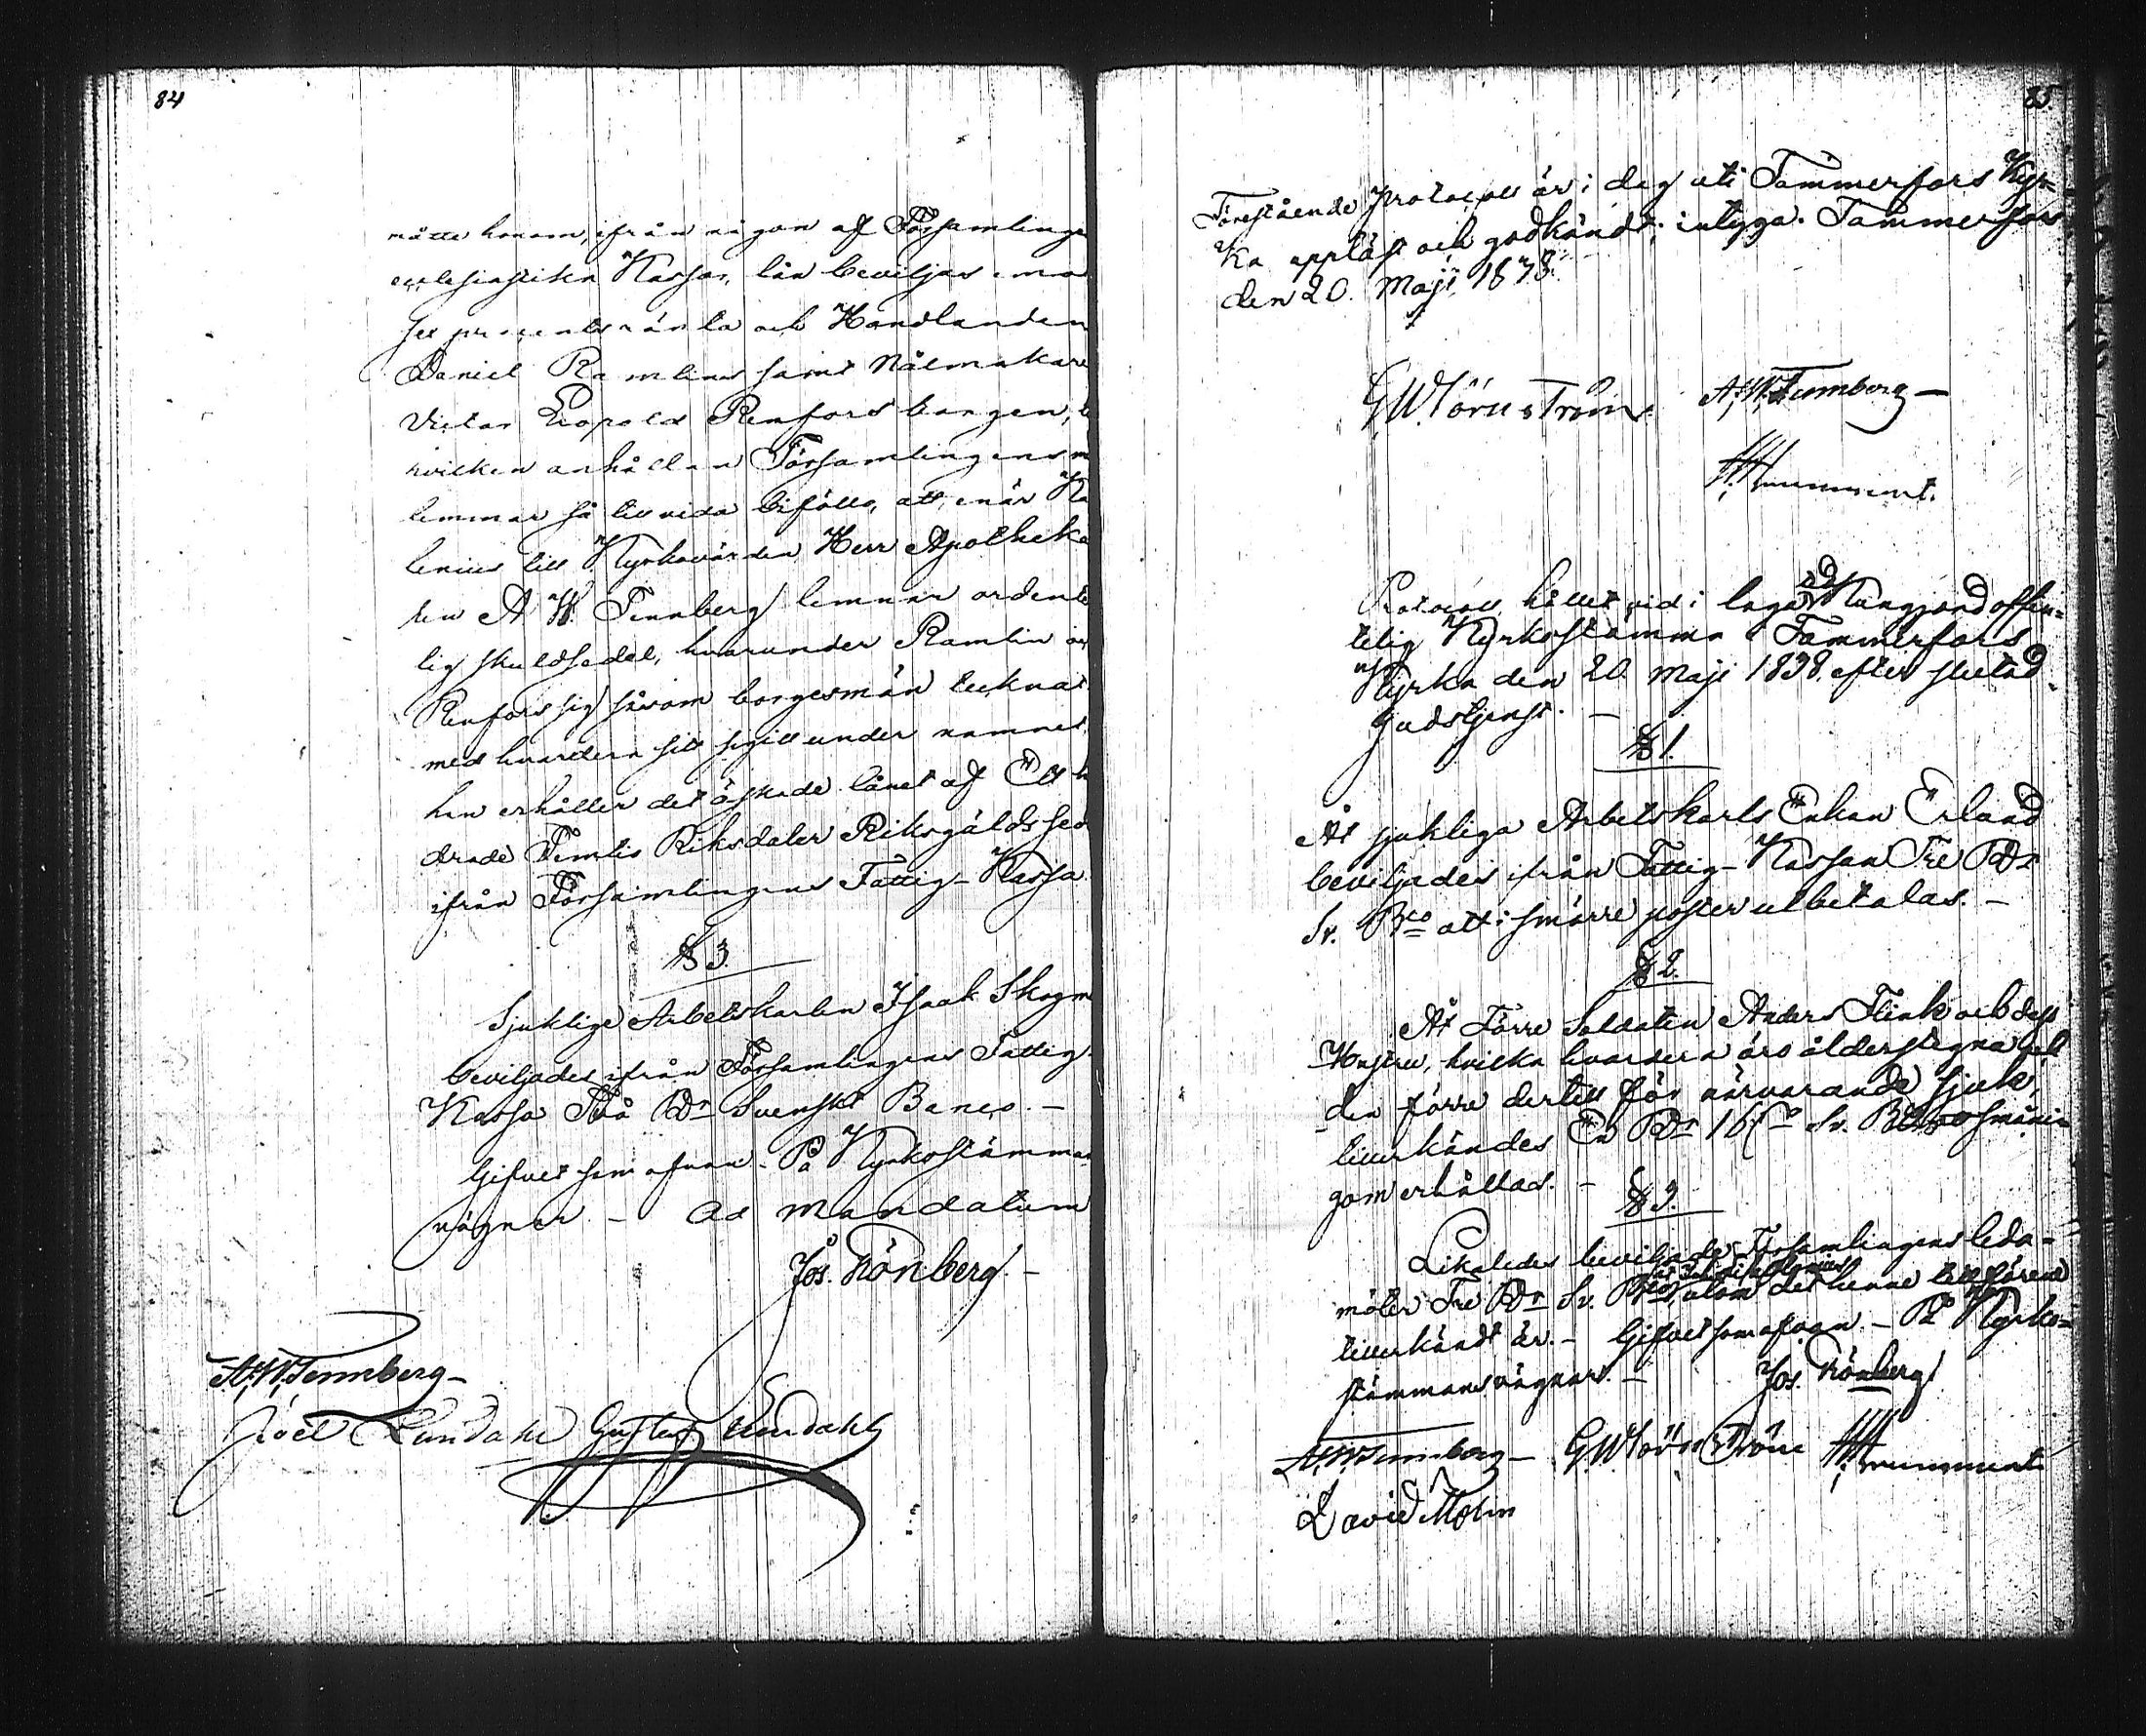 84
måtte honom, ifrån någon af Församlinge
ecclesiastika Kassor, lån beviljas emo
sex procents ränta och Handlanden
Daniel Ramlins samt Nålmakare
Victor Leopold Renfors borgen,
hvilken anhållan Församlingens
lemmar så till vida biföllo, att, enär
lenius till Kyrkovärden Herr Apotheka
ren A W Tennberg lemnar ordent
lig skuldsedel, hvarunder Ramlin
Renfors sig såsom borgesmän tecknat
med hvardera sitt sigill under namnet,
han erhåller det äskade lånet af Ett
drade Femtio Riksdaler Riksgälds sed
ifrån Församlingens Fattig-Kassa.
§ 3.
Sjuklige Arbetskarlen Isaak Skogm
beviljades ifrån Församlingens Fattig
Kassa Två Rdr Svenskt Banco. -
Gifvet som ofvan. På Kyrkostämman
vägnar - Ad Mandatum
Jos. Rönberg. -
A. W. Tennberg -
Joel Lundahl Gustaf Lundahl
85
Förestående Protocoll är i dag uti Tammerfors Kyr=
ka uppläst och godkändt; intyga. Tammerfors
den 20. Maji 1838.
G W Törnström. A. W. Tennberg -
Protocoll, hållet vid i laga Kungjord offen=
telig Kyrkostämma i Tammerfors
Kyrka den 20 Maji 1838. efter slutad
Gudstjenst. -
§ 1.
Åt sjukliga Arbetskarls Enkan Erland
beviljades ifrån Fattig-Kassan Tre Rdr
Sv. Bco att i smärre poster utbetalas. -
§ 2.
Åt Förre Soldaten Anders Flink och dess
Hustru, hvilka hvardera äro ålderstegna och
den förre dertill för närvarande sjuk,
tillerkändes En Rdr 16 Sv. smånin
gom erhållas. -
§ 3.
Likaledes beviljade Församlingens leda=
möter Tre Rdr Sv. Bco utom det henne tillförene
tillerkändt är. - Gifvet som ofvan. - På Kyrko=
stämmans vägnar. -
Jos. Rönberg
A. W. Tennberg - G. W Törnström
David Molin